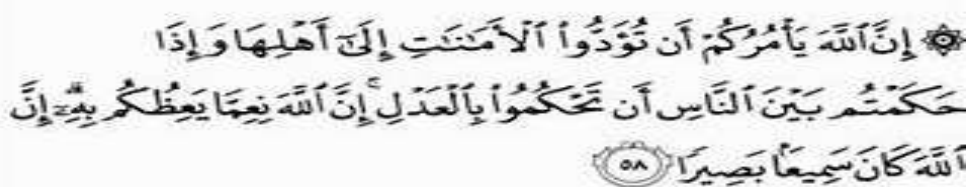 ۞ إِنَّ ٱللَّهَ يَأْمُرُكُمْ أَن تُؤَدُّوا۟ ٱلْأَمَـٰنَـٰتِ إِلَىٰٓ أَهْلِهَا وَإِذَا
حَكَمْتُم بَيْنَ ٱلنَّاسِ أَن تَحْكُمُوا۟ بِٱلْعَدْلِ ۚ إِنَّ ٱللَّهَ نِعِمَّا يَعِظُكُم بِهِۦٓ ۗ إِنَّ
ٱللَّهَ كَانَ سَمِيعًۢا بَصِيرًا ٥٨